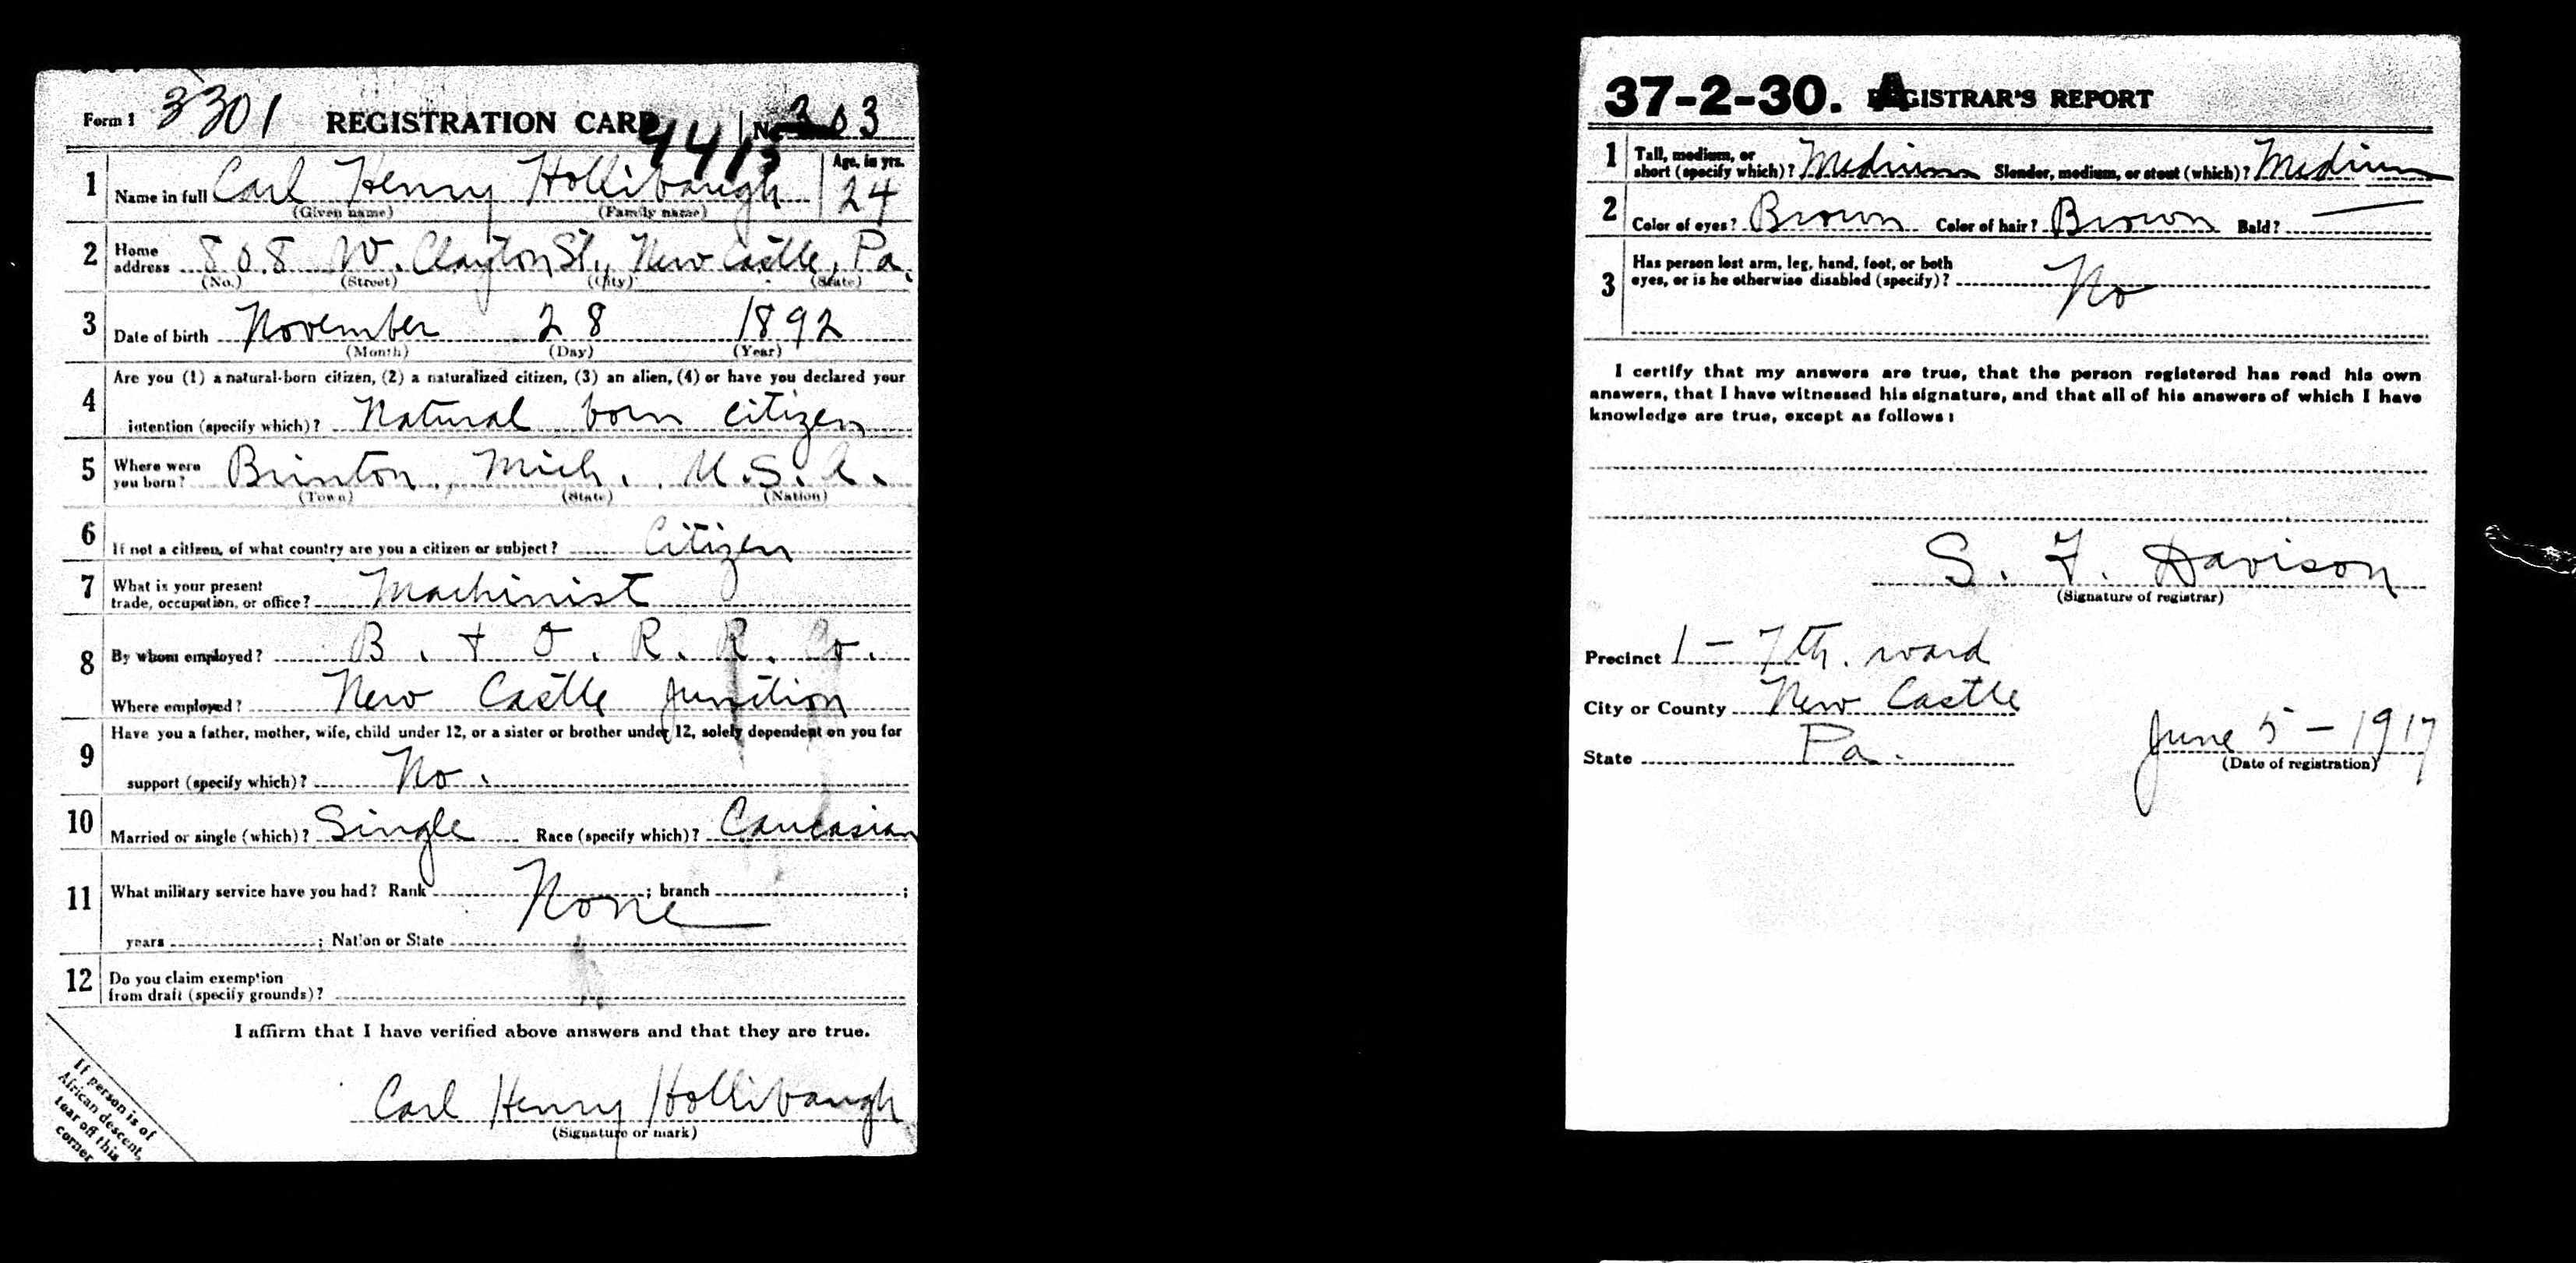 Form 1 3301 REGISTRATION CARD 4415 No. 203
1 Name in full Carl Henry Hollibaugh Age, in yrs. 24
(Given name) (Family name)
2 Home address 808 W. Clayton St., New Castle, Pa.
(No.) (Street) (City) (State)
3 Date of birth November 28 1892
(Month) (Day) (Year)
4 Are you (1) a natural-born citizen, (2) a naturalized citizen, (3) an alien, (4) or have you declared your
intention (specify which)? Natural born citizen
5 Where were you born? Brinton, Mich., U.S.A.
(Town) (State) (Nation)
6 If not a citizen, of what country are you a citizen or subject? Citizen
7 What is your present
trade, occupation, or office? Machinist
8 By whom employed? B. & O. R. R. Co.
Where employed? New Castle Junction
9 Have you a father, mother, wife, child under 12, or a sister or brother under 12, solely dependent on you for
support (specify which)? No.
10 Married or single (which)? Single Race (specify which)? Caucasian
11 What military service have you had? Rank None ; branch ;
years ; Nation or State
12 Do you claim exemption
from draft (specify grounds)?
I affirm that I have verified above answers and that they are true.
Carl Henry Hollibaugh
(Signature or mark)
If person is of
African descent,
tear off this
corner
37-2-30. A REGISTRAR'S REPORT
1 Tall, medium, or
short (specify which)? Medium Slender, medium, or stout (which)? Medium
2 Color of eyes? Brown Color of hair? Brown Bald? —
3 Has person lost arm, leg, hand, foot, or both
eyes, or is he otherwise disabled (specify)? No
I certify that my answers are true, that the person registered has read his own
answers, that I have witnessed his signature, and that all of his answers of which I have
knowledge are true, except as follows:
S. F. Davison
(Signature of registrar)
Precinct 1 - 7th. ward
City or County New Castle
State Pa. June 5 - 1917
(Date of registration)